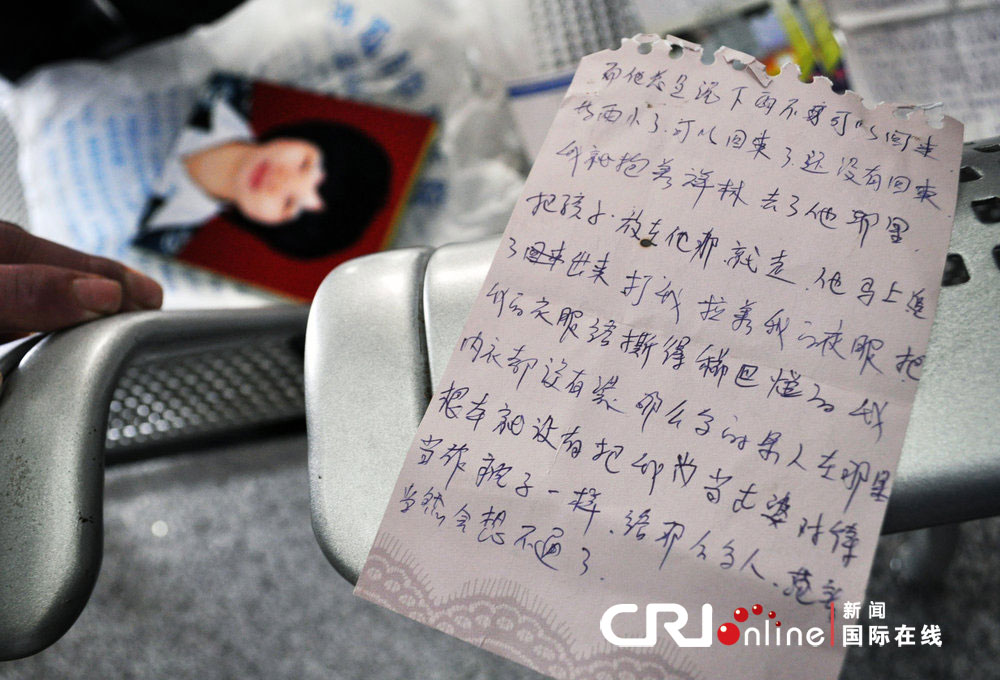 而他总是说下雨不要可以回来
雨小了可以回来了还没有回来
我就抱着祥林去了他那里.
把孩子放在他那就走.他马上追
了出来打我拉着我的衣服把
我的衣服给撕得稀巴烂了我
内衣都没有穿那么多的男人在那里
想本就没有把我当老婆对待
当作疯子一样.给那么多人.
当然会想不通了.
CRI online
新闻
国际在线